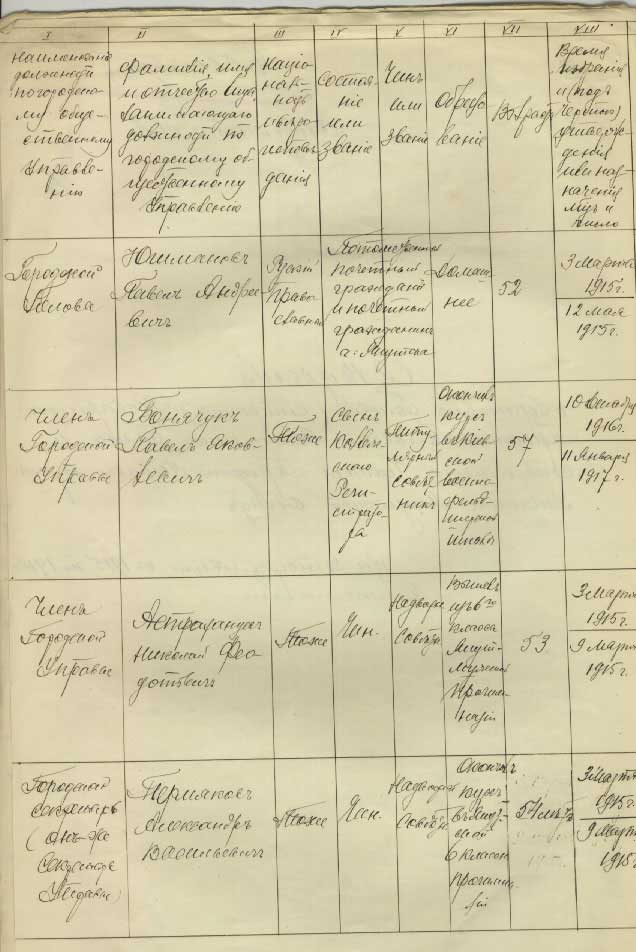 I II III IV V VI VII VIII
Наименованіе
должности
по городско-
му обще-
ственному
Управле-
нію
Фамилія, имя
и отчество
должности по
городскому об-
щественному
Управленію
Націо-
наль-
ность
и вѣро-
исповѣ-
данія
Состоя-
ніе
или
званіе
Чинъ
или
званіе
Образо-
ваніе
Возрастъ
Время
избранія
и (подъ
чертою)
утверж-
денія
или наз-
наченія
мѣс. и
число
Городской
Голова
Юшмановъ
Павелъ Андрее-
вичъ
Русскій
право-
славный
Потомственный
почетный
гражданинъ
и почетный
гражданинъ
г. Якутска
Домаш-
нее
52
3 Марта
1915 г.
12 мая
1915 г.
Членъ
Городской
Управы
Бонячукъ
Павелъ Яков-
левичъ
Тоже
Сынъ
Коллеж-
скаго
Реги-
страто-
ра
Титу-
лярный
Совѣт-
никъ
Окончилъ
курсъ
въ Кіев-
ской
военно-
фельд-
шерской
школѣ
57
1916 г.
11 Января
1917 г.
Членъ
Городской
Управы
Астраханцевъ
Николай Фео-
дотовичъ
Тоже
Чин.
Надворн.
Совѣтн.
класса
Якут-
прогим-
назіи
53
3 Марта
1915 г.
9 Марта
1915 г.
Городской
Секретарь
(онъ же
Секретарь
Управы)
Пермяковъ
Александръ
Васильевичъ
Тоже
Чин.
Надворный
Совѣтн.
Окончилъ
курсъ
въ Якут-
ской
6 класн.
прогимна-
зіи
54 лѣтъ
3 Марта
1915 г.
9 Марта
1915 г.